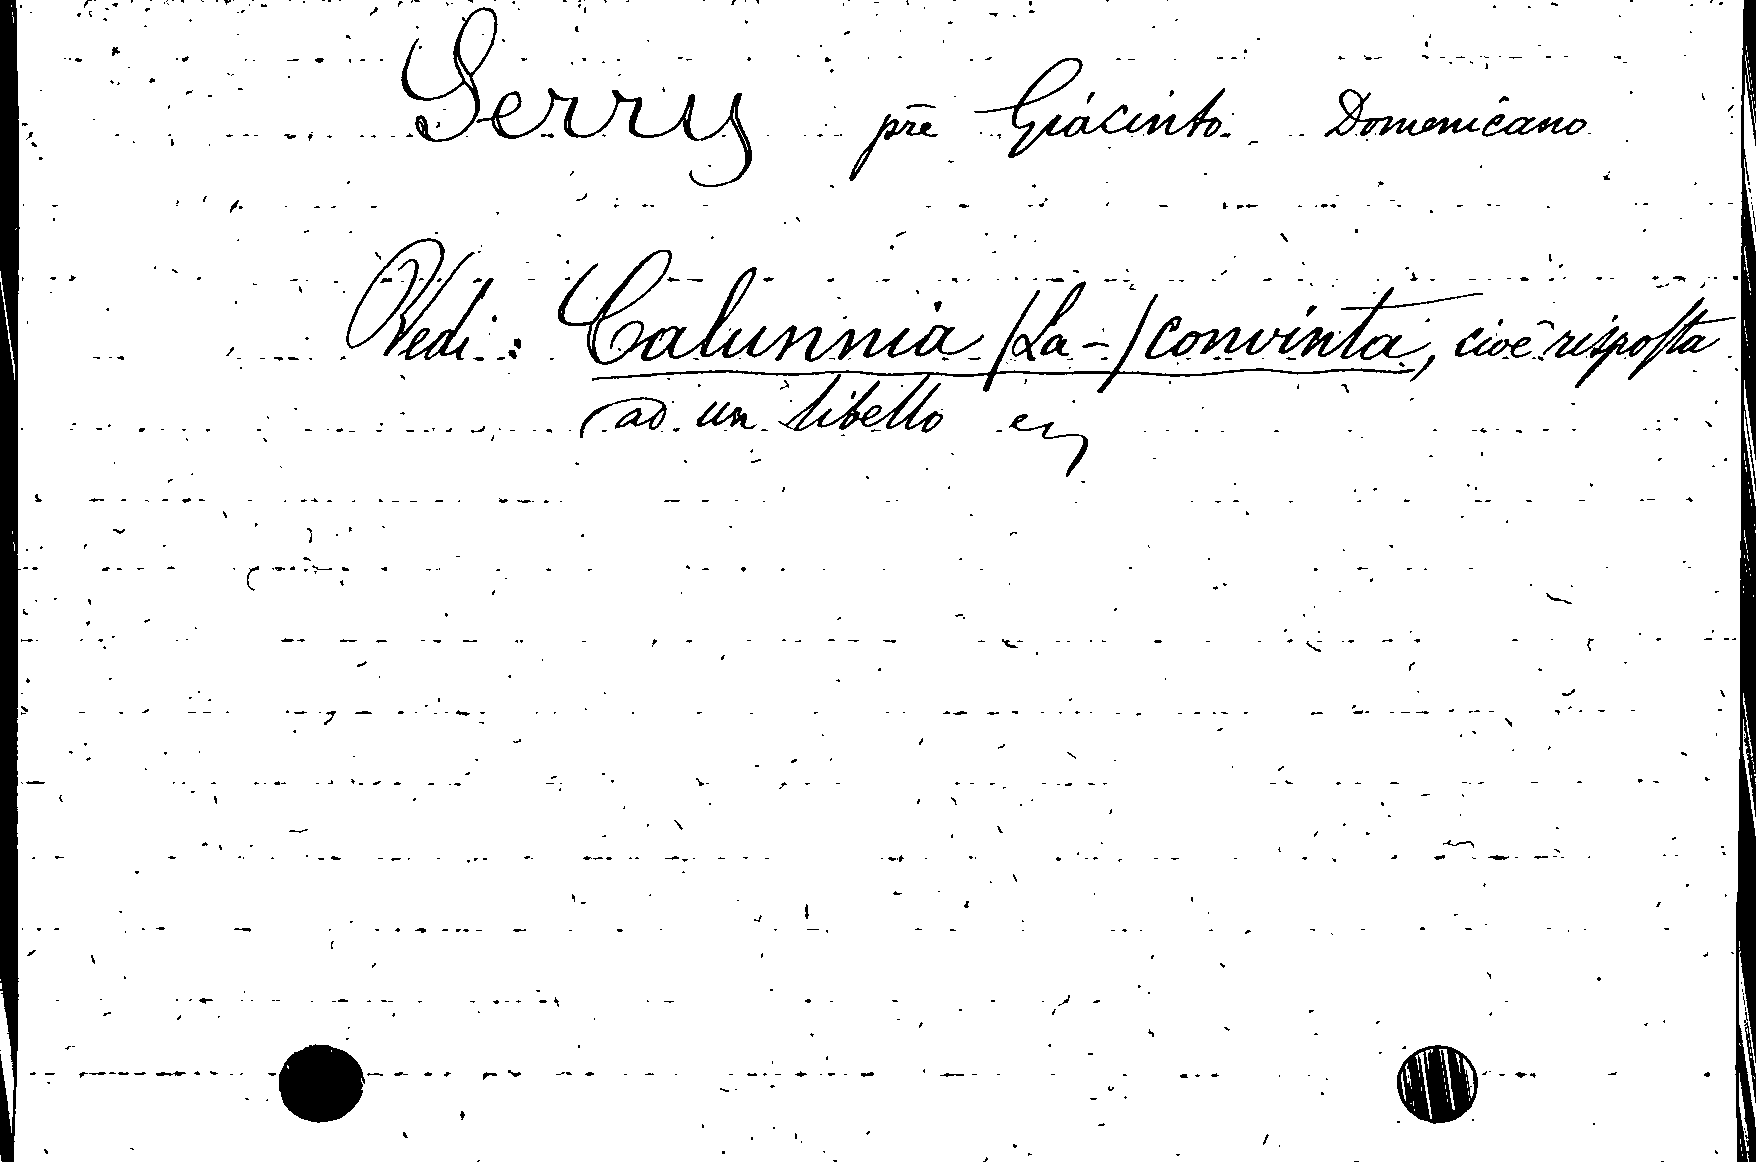 Serry prē Giacinto Domenicano
Vedi: Calunnia /La-/ convinta, cioè risposta
ad un libello